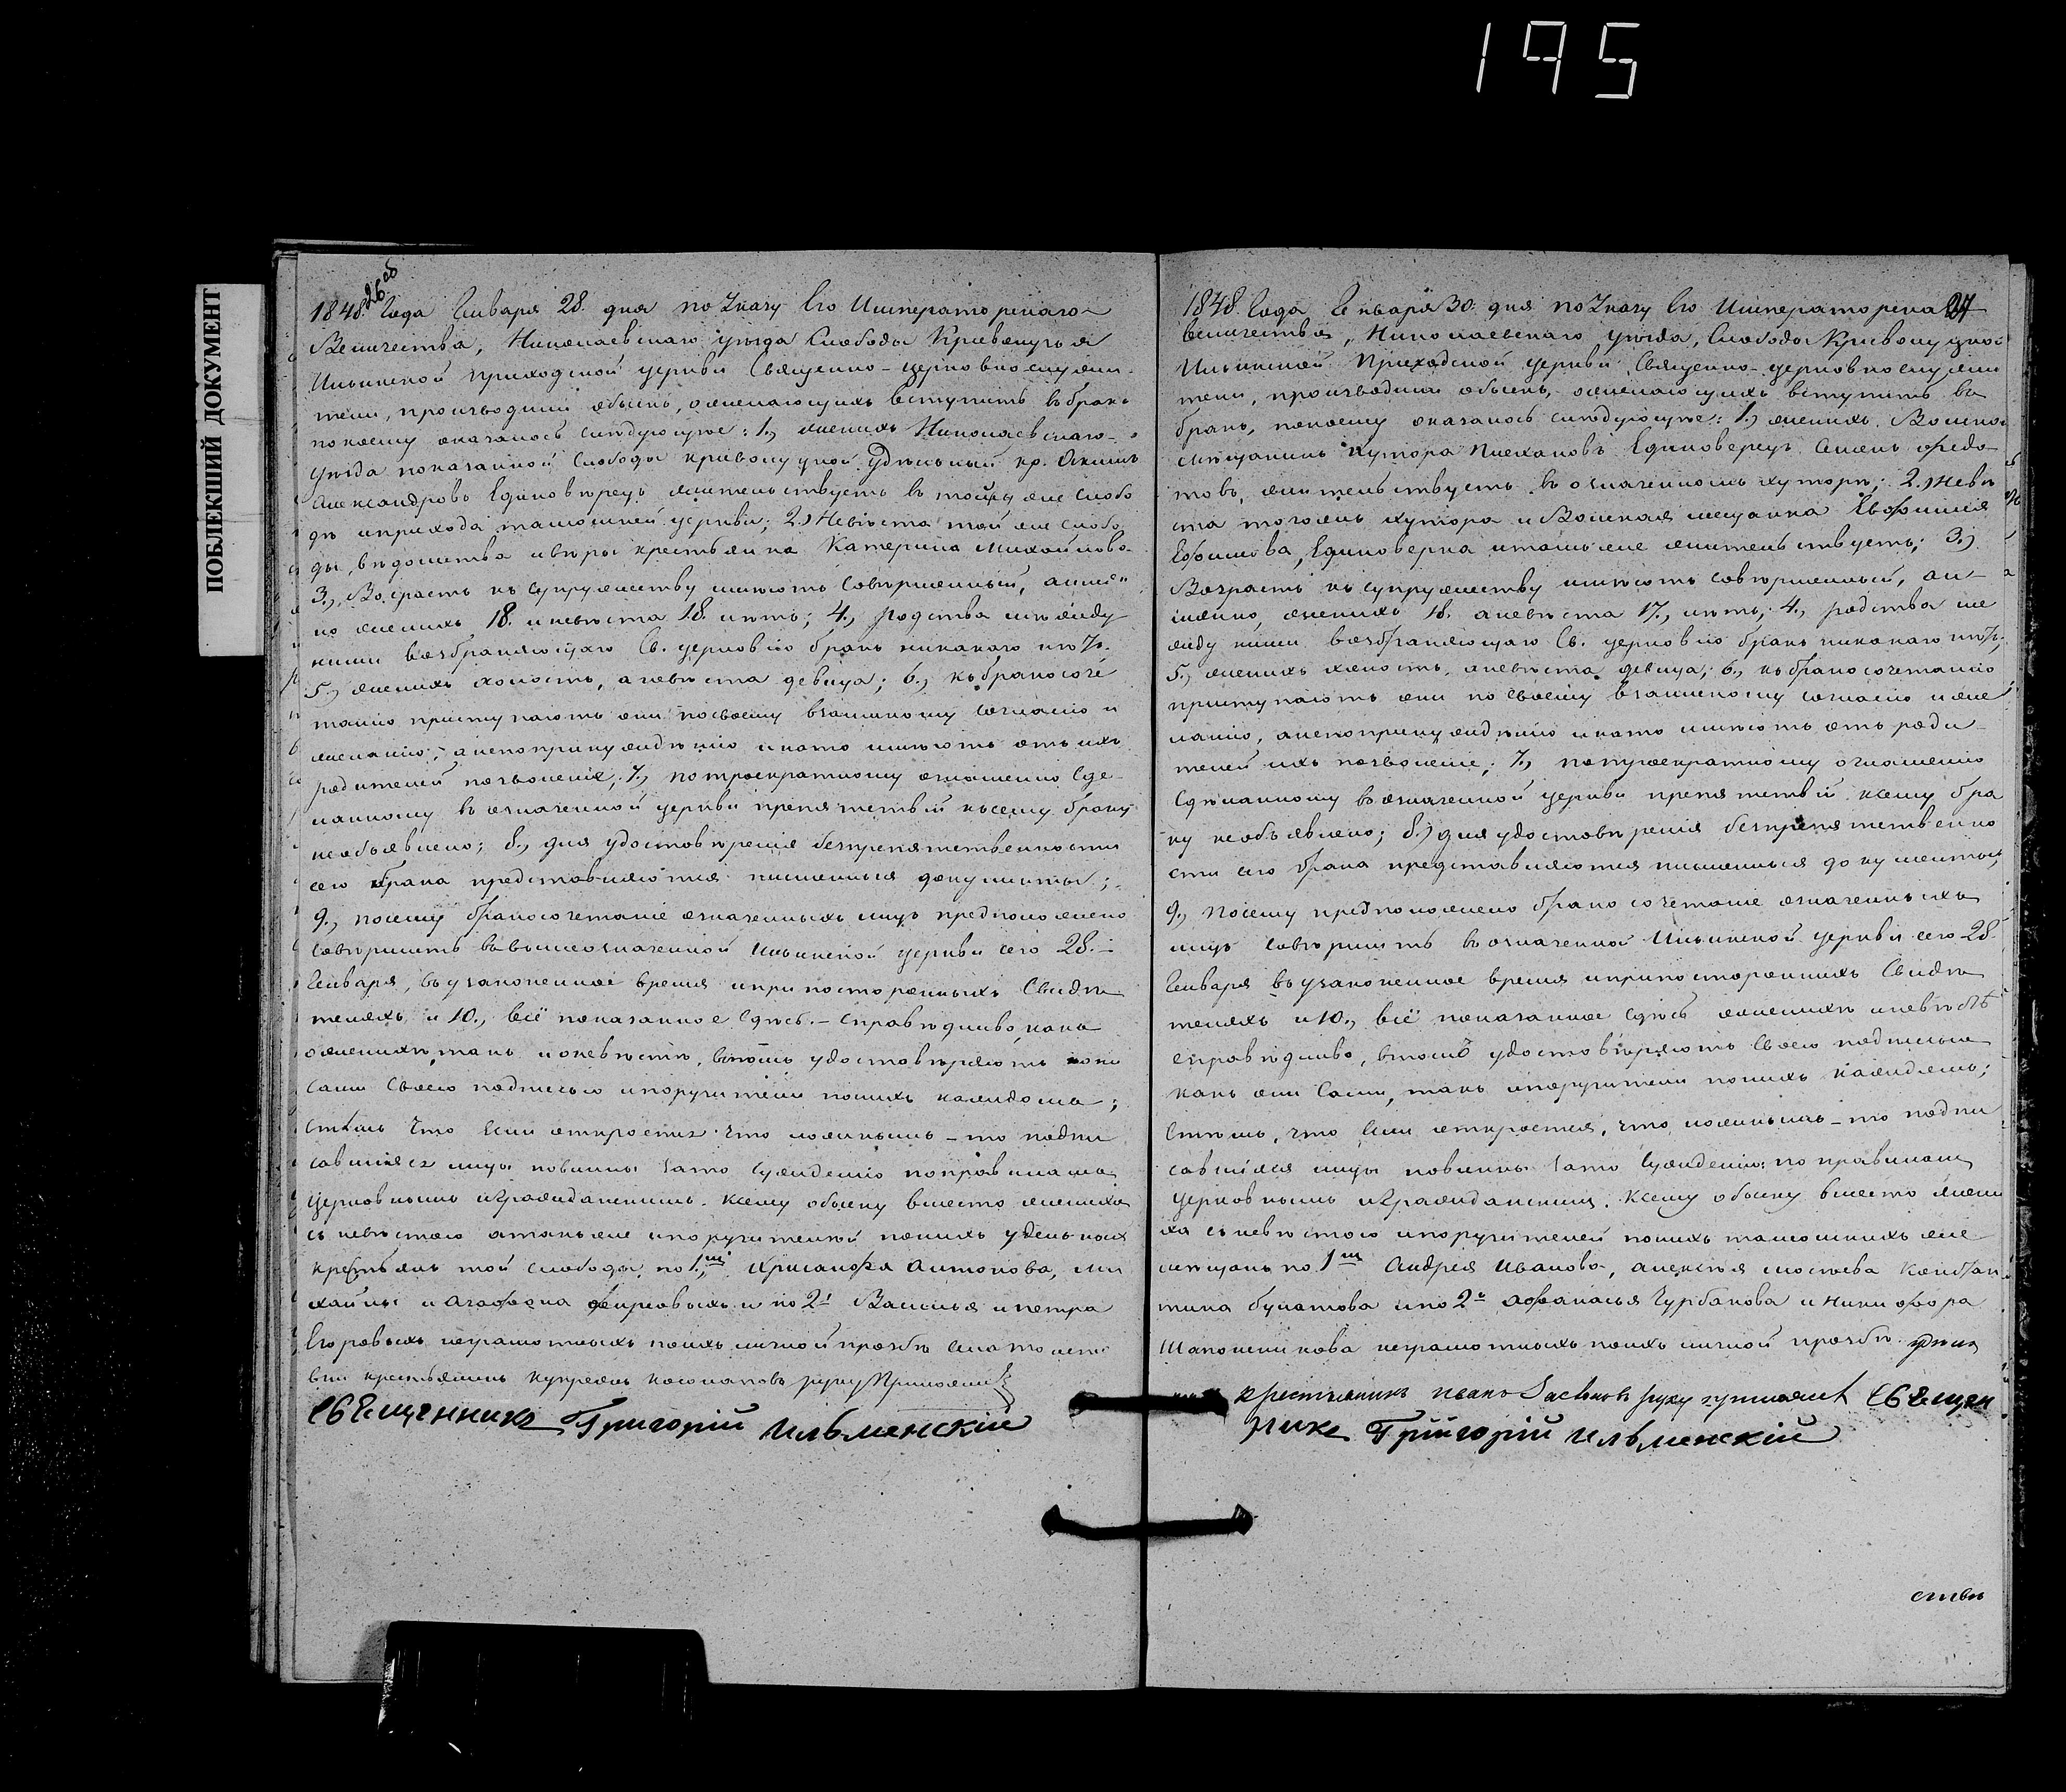 195
ПОБЛЕКШИЙ ДОКУМЕНТ
26 об
1848. Года Генваря 28. дня по Указу Его Императорскаго
Величества, Николаевскаго уезда Слободы Криволучья
Ильинской приходской церкви Священно-церковнослужи-
тели, производили обыскъ, ожелающихъ вступить въ бракъ
по коему оказалось следующее: 1., женихъ Николаевскаго
уезда показанной Слободы криволуцкой Удельный кр.
Александровъ Единоверецъ жительствуетъ въ той же слобо
де и прихода тамошней церкви; 2., Невеста той же слобо
ды, ведомства и веры крестьянка Катерина Михайлова
3., Возрастъ къ супружеству имеютъ совершенный, а имен
но женихъ 18. и невеста 18. летъ; 4., родства между
ними возбраняющаго Св. церковію бракъ никакого нетъ.
5., женихъ холостъ, а невеста девица; 6., къ бракосоче
танію приступаютъ они по своему взаимному согласію и
желанію, а не по принужденію и на то имеютъ отъ ихъ
родителей позволеніе; 7., по троекратному оглашенію сде-
ланному въ означенной церкви препятствій къ сему браку
не объявлено; 8., для удостоверенія безпрепятственности
сего брака представляются письменныя документы;
9., посему бракосочетаніе означенныхъ лицъ предположено
совершить въ вышеозначенной Ильинской церкви сего 28.
Генваря, въ узаконенное время и при постороннихъ Свиде
теляхъ и 10., всё показанное здесь справедливо, какъ
о женихе, такъ и о невесте, въ томъ удостоверяютъ какъ они
сами своею подписью и поручители по нихъ каждома;
с темъ что если откроется что ложнымъ-то подпи
савшіяся лицы повинны за то сужденію по правиламъ
церковнымъ и гражданскимъ. К сему обыску вместо жениха
съ невестою а также и поручителей по нихъ удельныхъ
крестьянъ той слободы по 1мъ Хрисанфа Антонова, Ми
хайлы и Агафона и по 2й Василья и петра
Егоровыхъ неграмотныхъ по ихъ личной прозьбе
крестьянинъ руку приложилъ
Священникъ Григорій Ильменскій
27
1848. Года Генваря 30. дня по Указу Его Императорска
Величества, Николаевскаго уезда, Слободы Криволуцкой
Ильинской Приходской церкви Священно-церковнослужи
тели, производили обыскъ, ожелающихъ вступить въ
бракъ, по коему оказалось следующее: 1., женихъ. Вольско
мещанинъ хутора Единоверецъ Семенъ Федо-
товъ, жительствуетъ въ означенномъ хуторе; 2., Неве
ста того жъ хутора и Вольская мещанка Евфимія
Ефимова, Единоверка и тамъ же жительствуетъ; 3.,
Возрастъ къ супружеству имеютъ совершенный, а и-
менно, женихъ 18. а невеста 17., летъ; 4., родства ме
жду ними возбраняющаго Св. церковію бракъ никакого нетъ;
5., женихъ холостъ, а невеста девица; 6., къ бракосочетанію
приступаютъ они по своему взаимному согласію и же
ланію, а не по принужденію и на то имеютъ отъ роди-
телей ихъ позволеніе; 7., по троекратному оглашенію
сделанному въ означенной церкви препятствій к сему бра
ку не объявлено; 8., для удостоверенія безпрепятственно
сти сего брака представляются письменныя документы
9., посему предположено бракосочетаніе означенныхъ
лицъ совершить въ означенной Ильинской церкви сего 28.
Генваря въ узаконенное время и при постороннихъ Свиде
теляхъ и 10., всё показанное здесь о женихе и невесте
справедливо, въ томъ удостоверяютъ своею подписью
какъ они сами, такъ и поручители по нихъ каждомъ;
с темъ, что если откроется, что ложнымъ-то подпи
савшіяся лицы повинны за то сужденію по правиламъ
церковнымъ и гражданскимъ. К сему обыску вместо жени
ха съ невестою и поручителей по нихъ тамошнихъ же
мещанъ по 1мъ Андрея Иванова, Алексея Констан
тина Булатова и по 2й Афанасья Чурбакова и Никифора
Шапошникова неграмотныхъ по ихъ личной прозьбе
крестьянинъ Иванъ руку приложилъ Священ
никъ Григорій Ильменскій